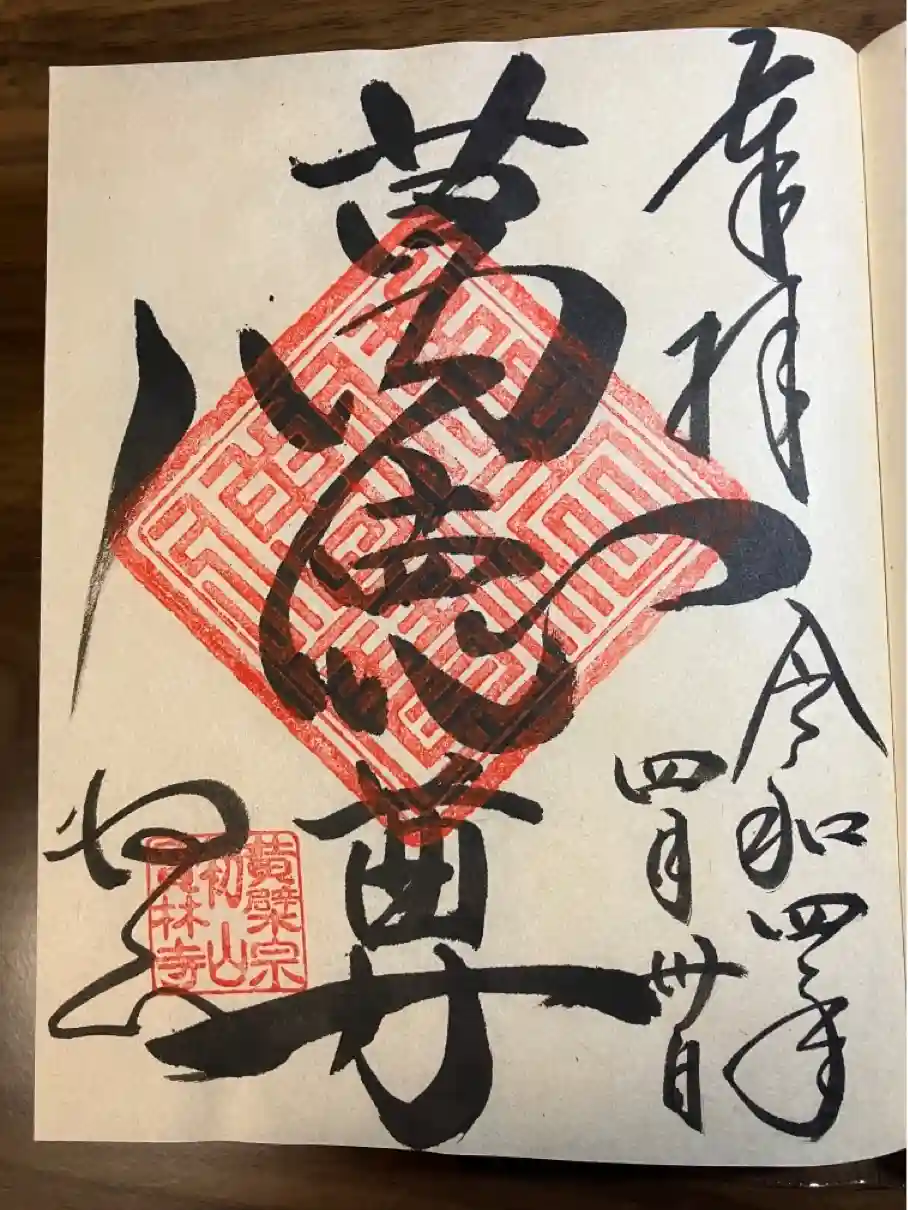 奉拝
令和四年
四月卅日
萬徳尊
黄檗宗
初山
寶林寺